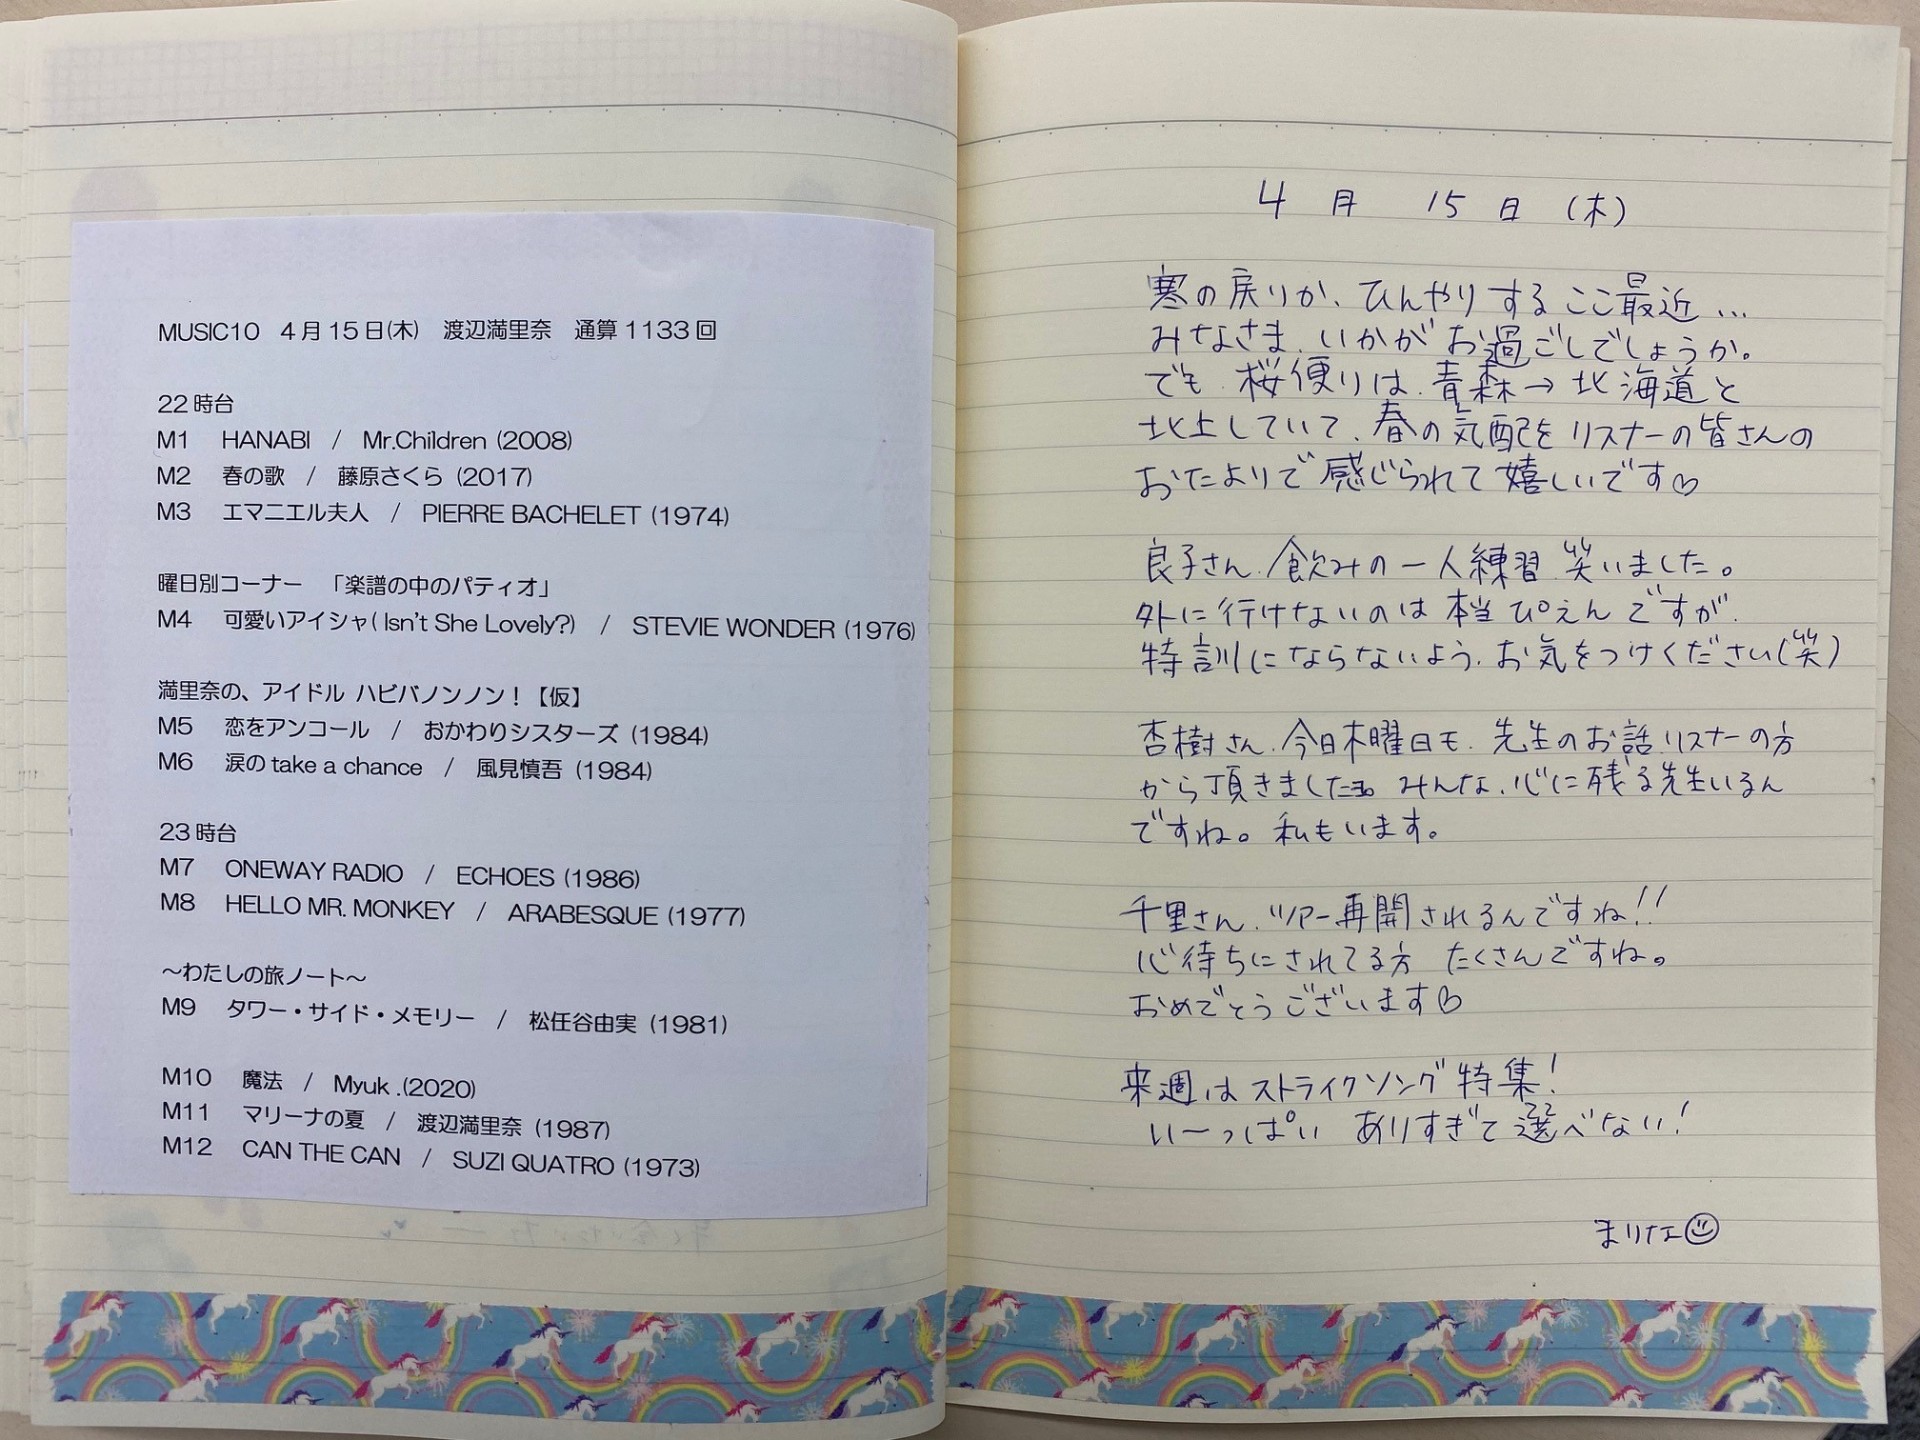 MUSIC10 4月15日(木) 渡辺満里奈 通算1133回
22時台
M1 HANABI / Mr.Children (2008)
M2 春の歌 / 藤原さくら (2017)
M3 エマニエル夫人 / PIERRE BACHELET (1974)
曜日別コーナー 「楽譜の中のパティオ」
M4 可愛いアイシャ( Isn't She Lovely?) / STEVIE WONDER (1976)
満里奈の、アイドル ハビバノンノン！【仮】
M5 恋をアンコール / おかわりシスターズ (1984)
M6 涙の take a chance / 風見慎吾 (1984)
23時台
M7 ONEWAY RADIO / ECHOES (1986)
M8 HELLO MR. MONKEY / ARABESQUE (1977)
～わたしの旅ノート～
M9 タワー・サイド・メモリー / 松任谷由実 (1981)
M10 魔法 / Myuk .(2020)
M11 マリーナの夏 / 渡辺満里奈 (1987)
M12 CAN THE CAN / SUZI QUATRO (1973)
4月 15日 (木)
寒の戻りか、ひんやりするここ最近…
みなさま、いかがお過ごしでしょうか。
でも、桜便りは、青森→北海道と
北上していて、春の気配をリスナーの皆さんの
おたよりで感じられて嬉しいです♡
良子さん、飲みの一人練習、笑いました。
外に行けないのは本当ぴえんですが、
特訓にならないよう、お気をつけください(笑)
杏樹さん、今日木曜日も、先生のお話、リスナーの方
から頂きました。みんな、心に残る先生いるん
ですね。私もいます。
千里さん、ツアー再開されるんですね!!
心待ちにされてる方 たくさんですね。
おめでとうございます♡
来週はストライクソング特集!
い〜っぱい ありすぎて選べない!
まりな☺